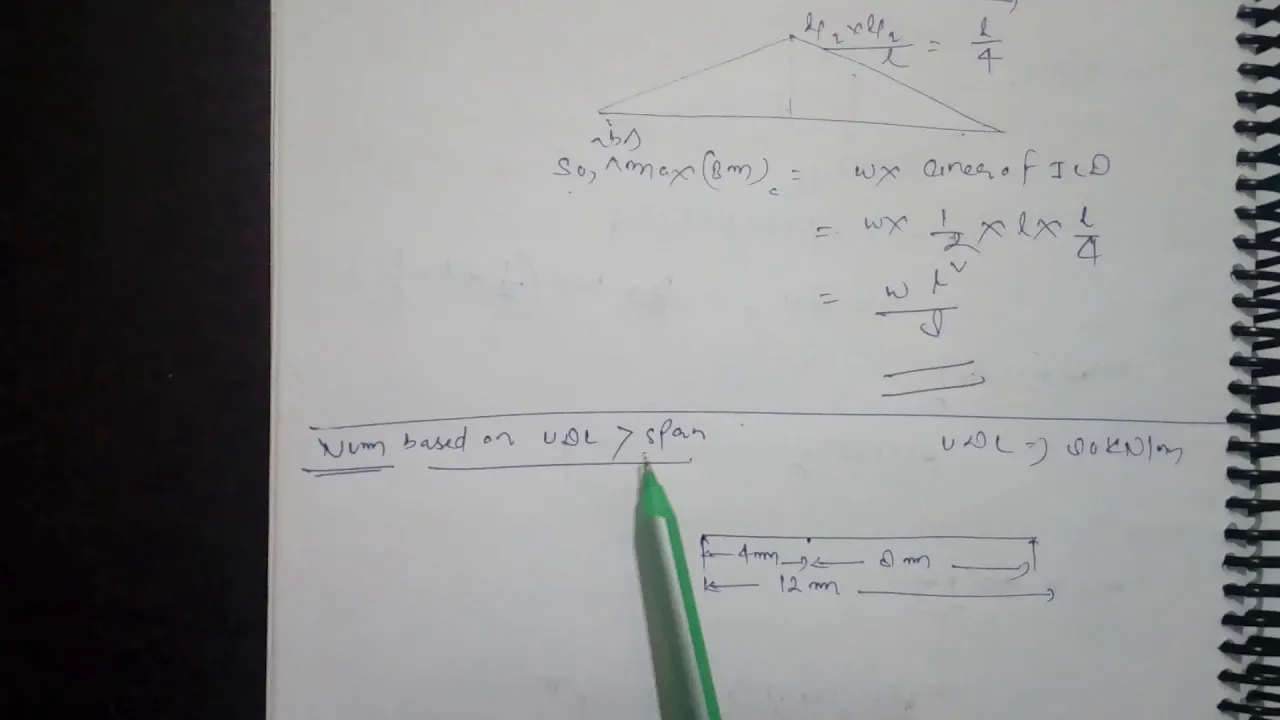 l/2 x l/2 / l = l/4
So, abs max (Bm)c = w x area of ILD
= w x 1/2 x l x l/4
= w l² / 8
Num based on UDL > span
UDL => 80 kN/m
4m 8m
12m